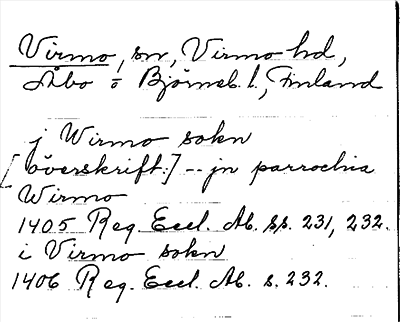 Virmo, sn, Virmo hd,
Åbo o Björneb. l., Finland
j Wirmo sokn
[överskrift:] -- jn parrochia
Wirmo
1405 Reg. Eccl. Ab. ss. 231, 232.
i Virmo sokn
1406 Reg. Eccl. Ab. s. 232.